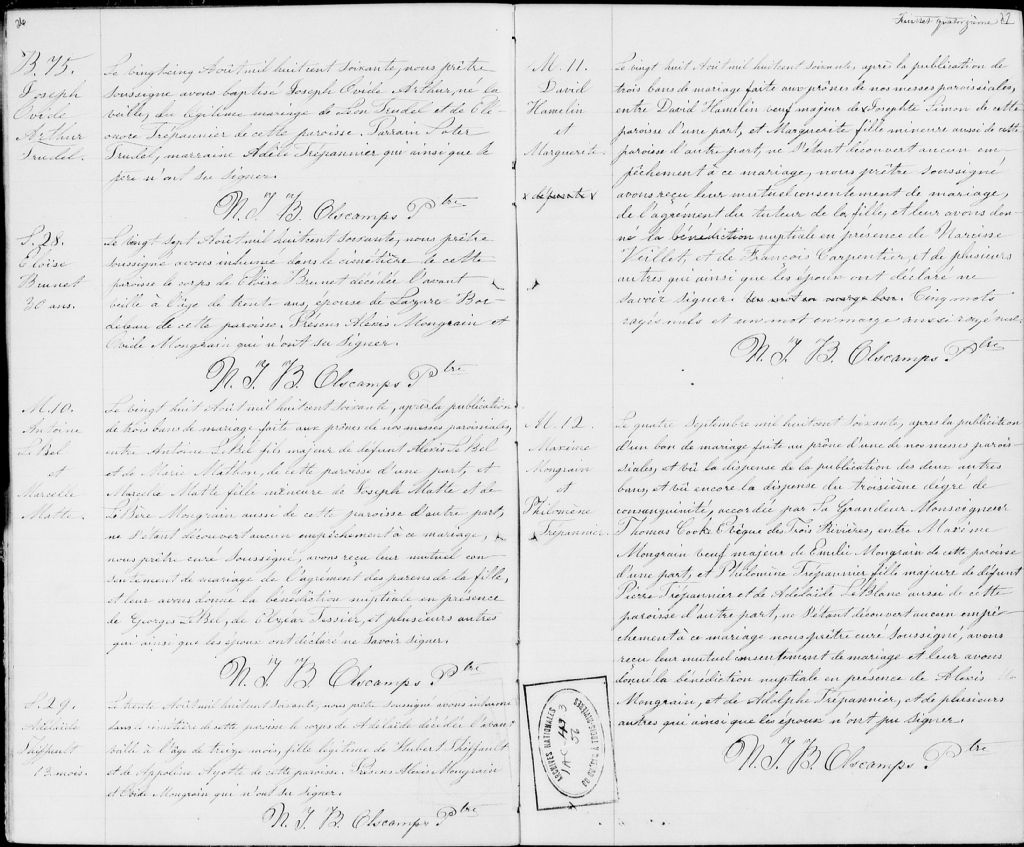 B. 75.
Joseph
Ovide
Arthur
Trudel.
Le vingtcinq Août mil huit cent soixante, nous prêtre
soussigné avons baptisé Joseph Ovide Arthur, né la
veille, du légitime mariage de Léon Trudel et de Elé-
onore Trépannier de cette paroisse. Parrain
Trudel, marraine Adèle Trépannier qui ainsi que le
père n'ont su signer.
N. T. B. Olscamps Ptre
S. 28.
Eloïse
Brunet
30 ans.
Le vingt sept Août mil huit cent soixante, nous prêtre
soussigné avons inhumé dans le cimetière de cette
paroisse le corps de Eloïse Brunet décédée l'avant
veille à l'âge de trente ans, épouse de Lazare Bor-
deleau de cette paroisse. Présens Alexis Mongrain et
Ovide Mongrain qui n'ont su signer.
N. T. B. Olscamps Ptre
M. 10.
Antoine
LeBel
et
Marcelle
Matte.
Le vingt huit Août mil huit cent soixante, après la publication
de trois bans de mariage faite aux prônes de nos messes paroissiales,
entre Antoine LeBel fils majeur de défunt Alexis LeBel
et de Marie Matton, de cette paroisse d'une part, et
Marcelle Matte fille mineure de Joseph Matte et de
Mongrain aussi de cette paroisse d'autre part,
ne s'étant découvert aucun empêchement à ce mariage,
nous prêtre curé soussigné, avons reçu leur mutuel con-
sentement de mariage de l'agrément des parens de la fille,
et leur avons donné la bénédiction nuptiale en présence
de Georges LeBel, de Elzéar Tessier, et plusieurs autres
qui ainsi que les époux ont déclaré ne savoir signer.
N. T. B. Olscamps Ptre
S. 29.
Adélaïde
Thiffault
13 mois.
Le trente Août mil huit cent soixante, nous prêtre soussigné avons inhumé
dans le cimetière de cette paroisse le corps de Adélaïde décédée l'avant
veille à l'âge de treize mois, fille légitime de Hubert Thiffault
et de Appoline Ayotte de cette paroisse. Présens Alexis Mongrain
et Ovide Mongrain qui n'ont su signer.
N. T. B. Olscamps Ptre
Feuillet quatorzième
M. 11.
David
Hamelin
et
Marguerite.
Le vingt huit Août mil huit cent soixante, après la publication de
trois bans de mariage faite aux prônes de nos messes paroissiales,
entre David Hamelin veuf majeur de Josephte Simon de cette
paroisse d'une part, et Marguerite fille mineure aussi de cette
paroisse d'autre part, ne s'étant découvert aucun em-
pêchement à ce mariage, nous prêtre soussigné
avons reçu leur mutuel consentement de mariage,
de l'agrément du tuteur de la fille, et leur avons don-
né la bénédiction nuptiale en présence de Narcisse
Veillet, et de François Carpentier, et de plusieurs
autres qui ainsi que les époux ont déclaré ne
savoir signer. un mot en marge bon. Cinq mots
rayés nuls et un mot en marge aussi rayé nul.
N. T. B. Olscamps Ptre
M. 12.
Maxime
Mongrain
et
Philomène
Trépannier.
Le quatre Septembre mil huit cent soixante, après la publication
d'un ban de mariage faite au prône d'une de nos messes parois-
siales, et vû la dispense de la publication des deux autres
bans, et vû encore la dispense du troisième dégré de
consanguinité, accordée par Sa Grandeur Monseigneur
Thomas Cooke Evêque des Trois Rivières, entre Maxime
Mongrain veuf majeur de Emilie Mongrain de cette paroisse
d'une part, et Philomène Trépannier fille majeure de défunt
Pierre Trépannier et de Adélaïde LeBlanc aussi de cette
paroisse d'autre part, ne s'étant découvert aucun empê-
chement à ce mariage nous prêtre curé soussigné, avons
reçu leur mutuel consentement de mariage et leur avons
donné la bénédiction nuptiale en présence de Alexis
Mongrain, et de Adolphe Trépannier, et de plusieurs
autres qui ainsi que les époux n'ont pu signer.
N. T. B. Olscamps Ptre
ARCHIVES NATIONALES